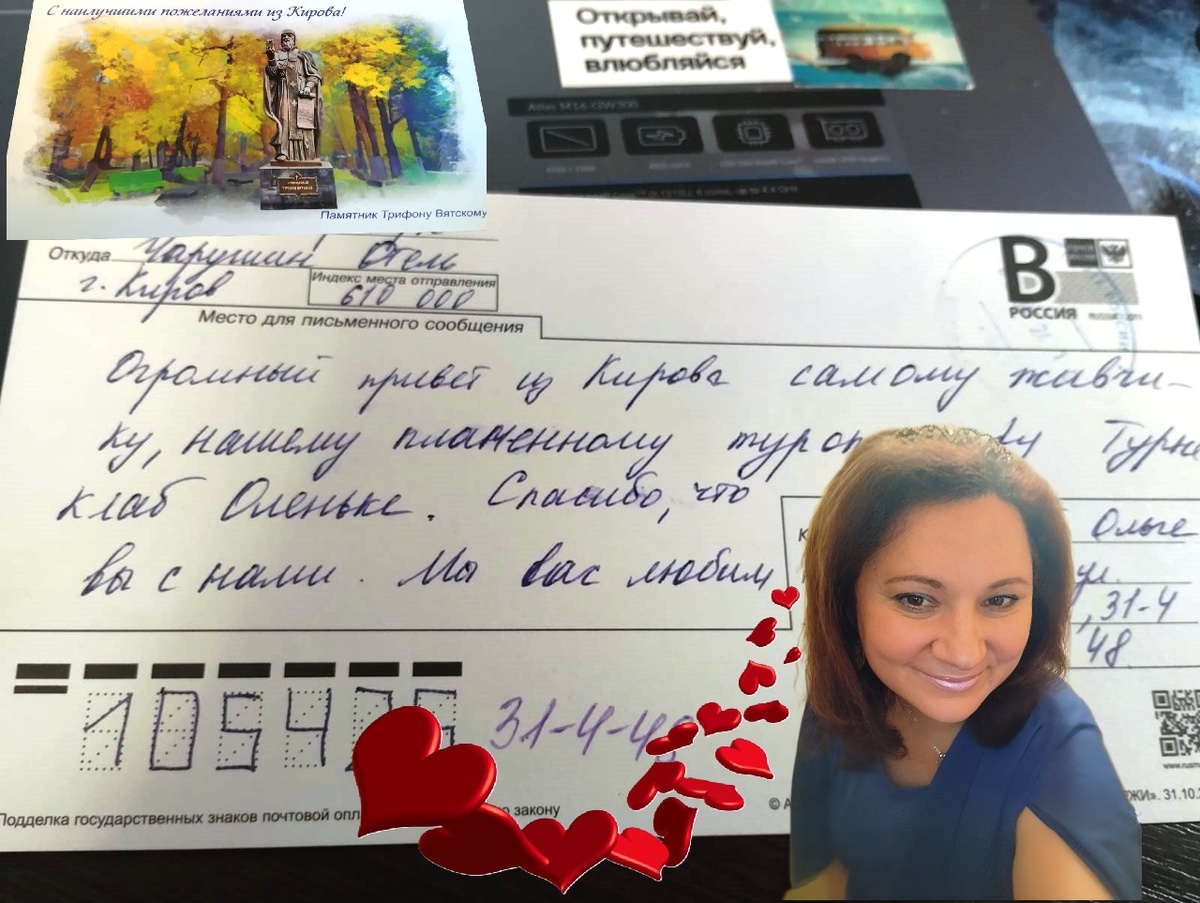 С наилучшими пожеланиями из Кирова!
Памятник Трифону Вятскому
Открывай,
путешествуй,
влюбляйся
Atlas M16-GW300
Откуда Чарушин Отель
г. Киров
Индекс места отправления
610 000
Место для письменного сообщения
B
РОССИЯ
Огромный привет из Кирова самому живчи-
ку, нашему пламенному
клаб Оленьке. Спасибо, что
вы с нами. Мы вас любим
Ольге
ул.
,31-4
48
31-4-48
Подделка государственных знаков почтовой
закону
31.10.